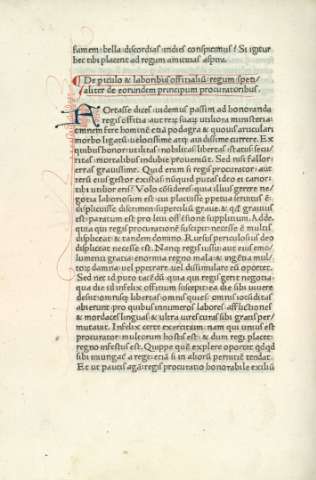 famem bella discordias indies conspicimus? Si igitur
hec tibi placent ad regum amicitias aspira.
De piculo & laboribus offitialiū regum speti/
aliter de eorundem principum procuratoribus.
Ortasse dices videmus passim ad honoranda
regis offitia aut rei suaꝫ utiliora ministeria
eminem fere hominē etiā podagra & quouis articulari
morbo ligatū: velotissime atqꝫ aia dissime currere. Ex
quibus honor: utilitas: nobilitas: libertas: status: secu/
ritas: mortalibus indubie proveniūt. Sed nisi fallor:
erras gravissime. Quid enim si regis procurator: aut
rerū eius gestor existas: nūquid putas ideo et tanor:
tibi utilior eris? Volo cōsideres: quia illius gerere ne/
gotia laboriosum est: cui placuisse ppetua servitus ē:
displicuisse discrimen: supercilium grave: & qđ gravius
est: paratum est pro levi offēsione supplitium. Adde:
quia qui regis procurationē suscipit: necesse ē multis
displiceat: & tandem domino. Rursus periculosius deo
displiceat necesse est. Nanqꝫ regis iussu: aut eius emo/
lumenti gratia: enormia regno mala: & ingētia mul/
totiens damna: vel pperare: vel dissimulare eū oportet.
Sed nec id puto tacēdū: quia qui regis gerit negotia:
qua die id infelix offitium suscepit: ea die sibi vivere
desiit: omnisqꝫ libertas: omnis quies: omnis iocūditas
abierunt: pro quibus innumeros labores: afflictiones
& mordaces linguas: & ultra vires curas sibi gratis per/
mutavit. Infelix certe exercitium: nam qui unius est
procurator: multorum hostis est: & dum regi placet:
regno infestus est. Quippe quē explere oportet qđqđ
sibi iniungat a rege: etiā si in aliorū pernitiē tendat.
Et ut paucis agā: regis procuratio honorabile exiliū